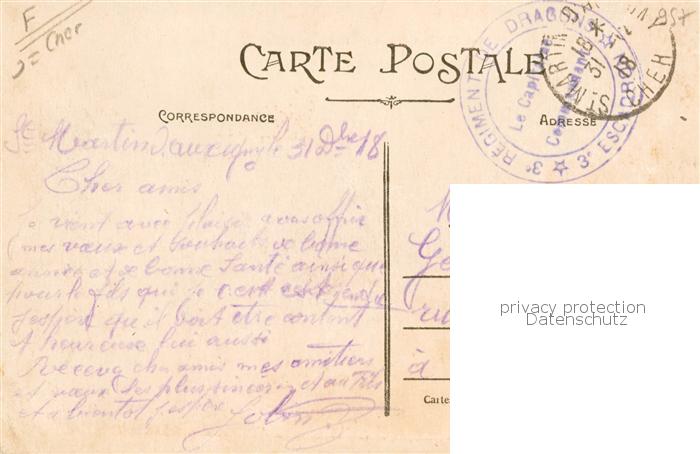 F
Cher
857
CARTE POSTALE
CORRESPONDANCE
ADRESSE
3e RÉGIMENT DE DRAGONS
3e ESCADRON
Le Capitaine
Commandant
ST MARTIN D'AUXIGNY
31
18
CHER
St Martin d'auxigny le 31 Dbre 18
Cher amis
Je vient avec plaisir vous offrir
mes vœux et souhaits de bonne
année et de bonne santé ainsi que
pour le fils qui
j'espère qu'il doit être content
et heureuse lui aussi
Recevez cher amis mes amitiers
et vœux les plus sincères et au fils
et a bientot j'espère
à
Cartes
privacy protection
Datenschutz